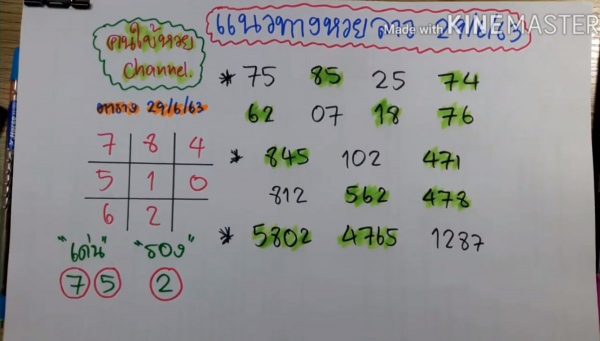 แนวทางหวยลาว 29/6/63
Made with KINEMASTER
คนใบ้หวย
Channel.
ตาราง 29/6/63
* 75 85 25 74
62 07 18 76
* 845 102 471
812 562 478
* 5802 4765 1287
7 8 4
5 1 0
6 2
"เด่น" "รอง"
7 5 2